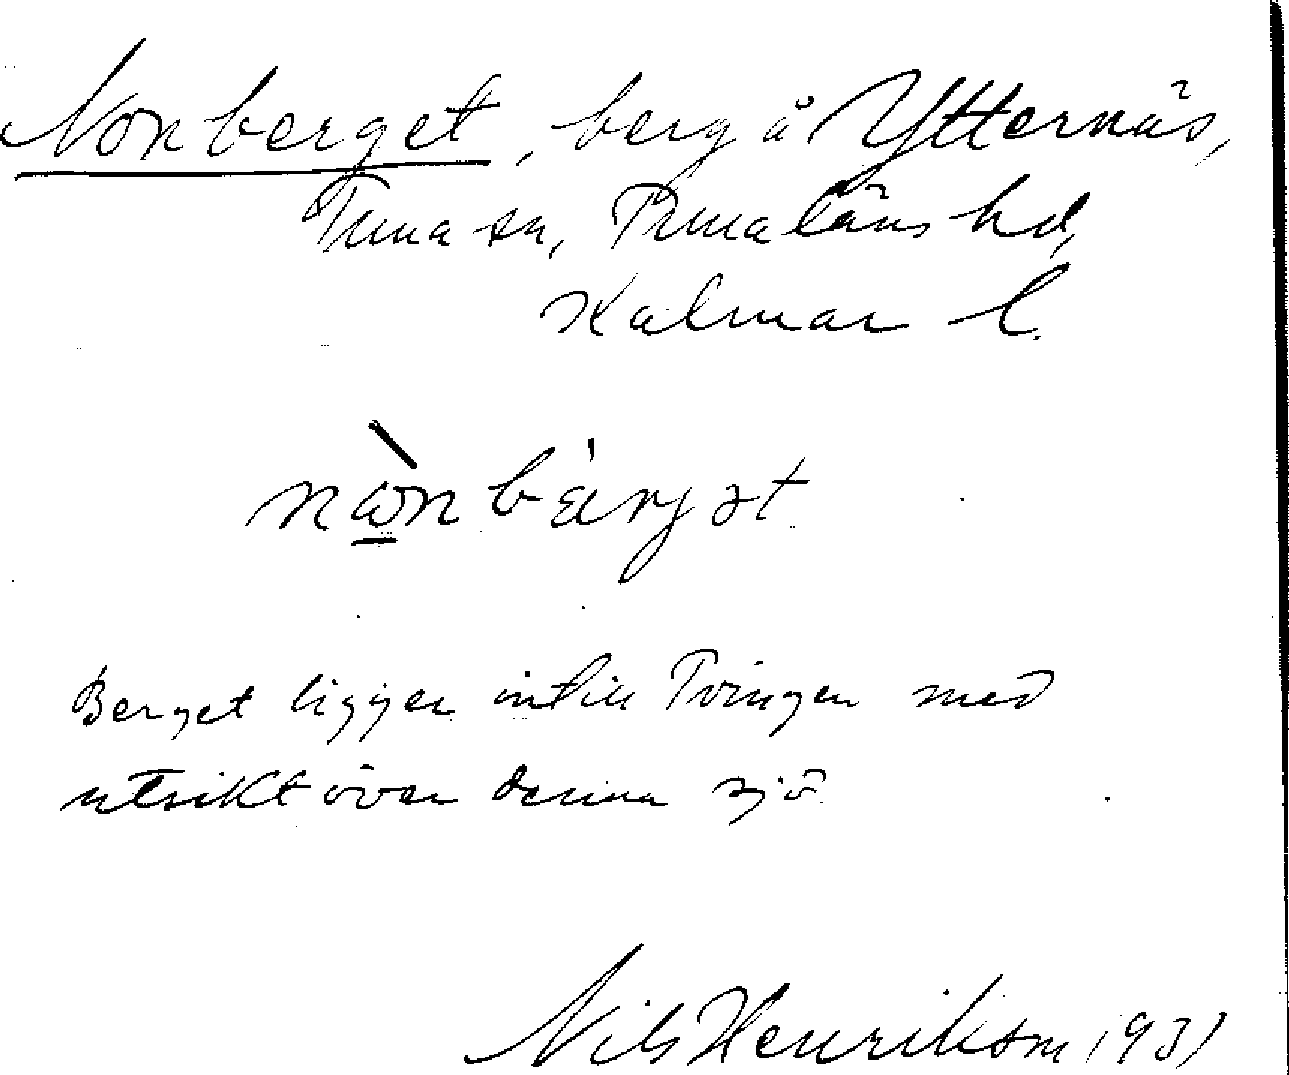 Nonberget, berg å Ytternäs,
Tuna sn, Tunaläns hd,
Kalmar l.
nɷ̀nbæ̀rjət
Berget ligger intill Tvingen med
utsikt över denna sjö
Nils Henrikson 1931